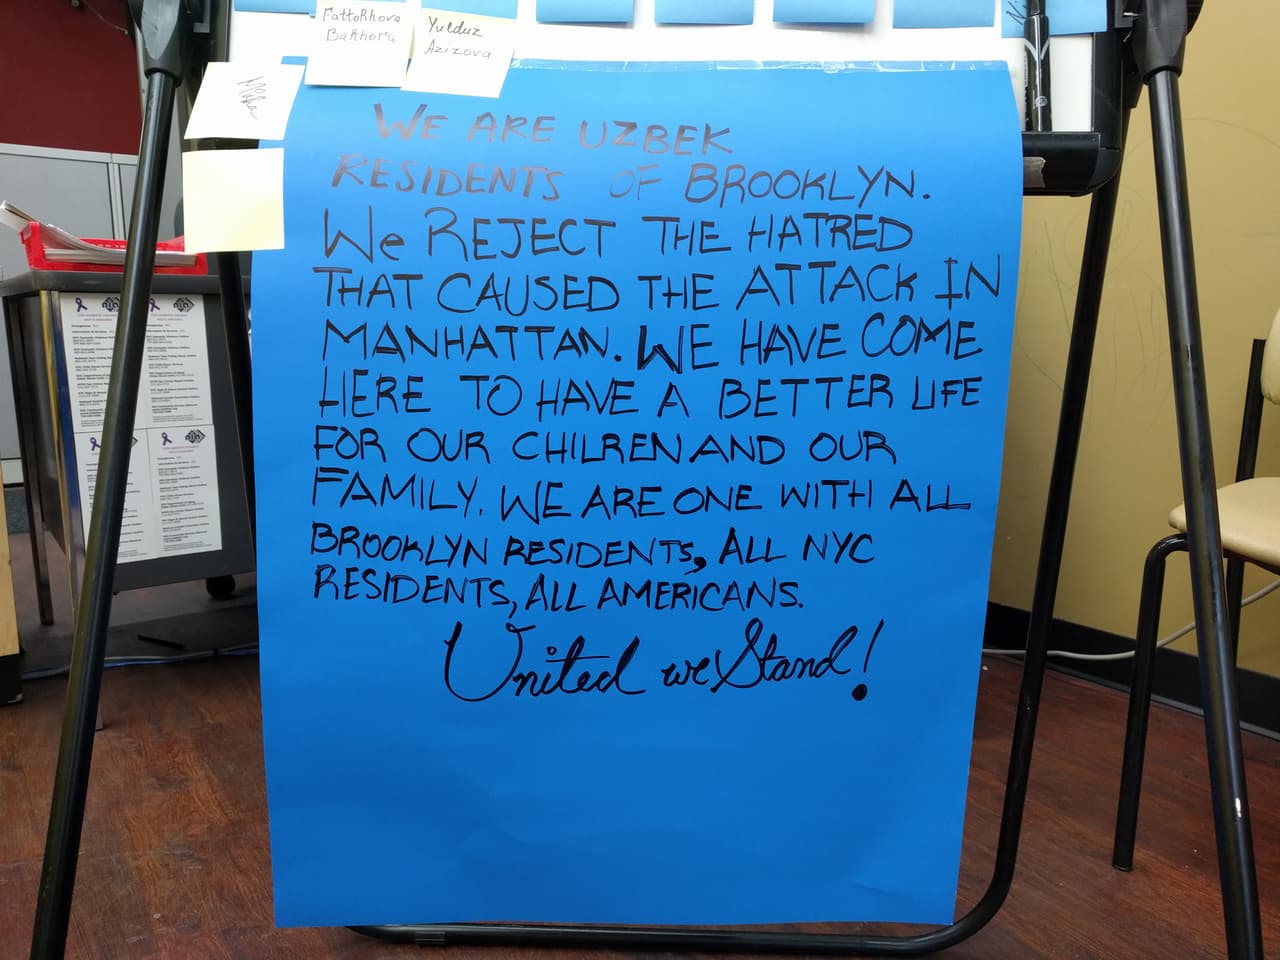 FattoKhova
Bakhora
Yulduz
Azizova
WE ARE UZBEK
RESIDENTS OF BROOKLYN.
We REJECT THE HATRED
THAT CAUSED THE ATTACK IN
MANHATTAN. WE HAVE COME
HERE TO HAVE A BETTER LIFE
FOR OUR CHILREN AND OUR
FAMILY. WE ARE ONE WITH ALL
BROOKLYN RESIDENTS, ALL NYC
RESIDENTS, ALL AMERICANS.
United we Stand!